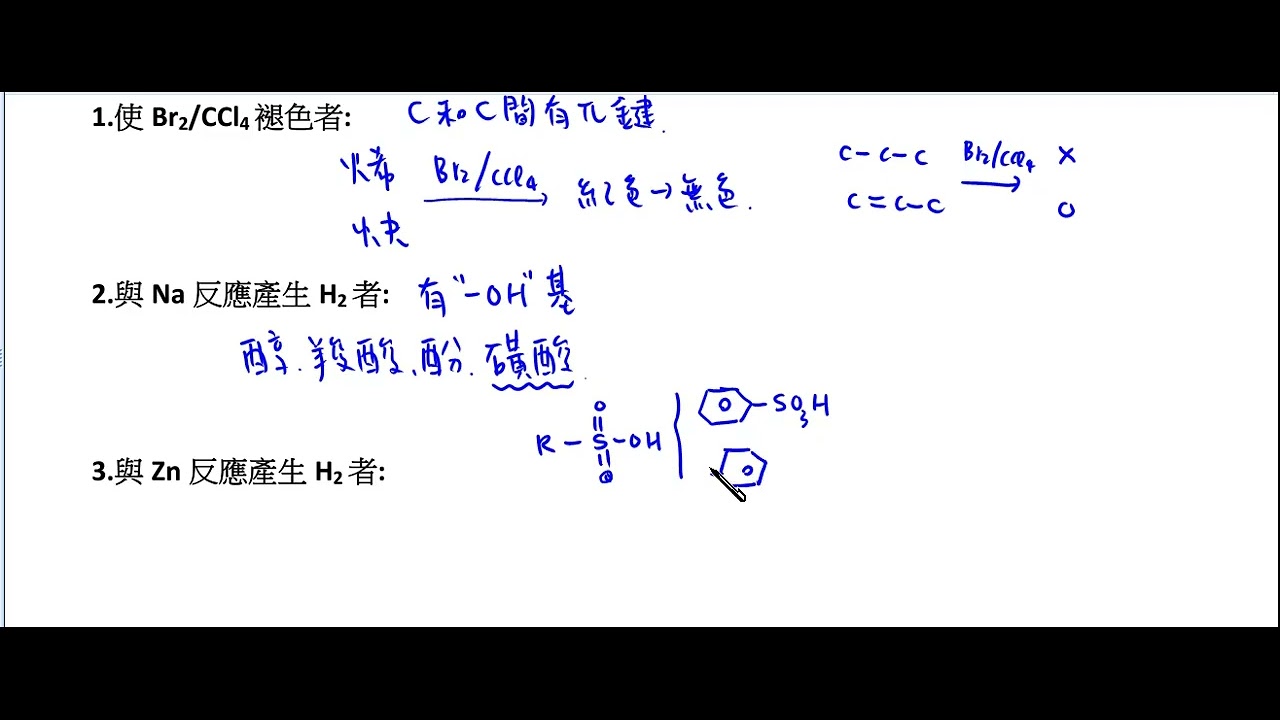 1.使 Br₂/CCl₄ 褪色者: C和C間有π鍵.
烯 Br₂/CCl₄ 紅色→無色.
炔
C-C-C Br₂/CCl₄ X
C=C-C O
2.與 Na 反應產生 H₂ 者: 有"-OH"基
醇.羧酸、酚.磺酸.
O
R-S-OH
O
SO₃H
3.與 Zn 反應產生 H₂ 者: